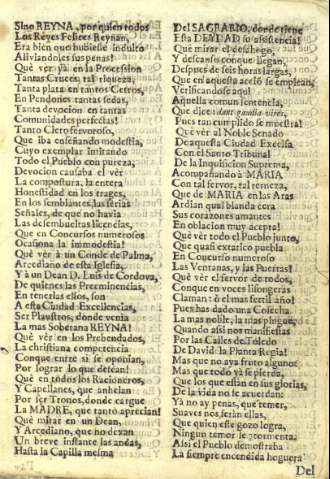 Sino REYNA, por quien todos
Los Reyes Felices Reynan,
Era bien que hubiesse indulto
Aliviandoles sus penas!
Què ver yà en la Procession
Tantas Cruces, tal riqueza,
Tanta plata en tantos Cetros,
En Pendones tantas sedas,
Tanta devocion en tantas
Comunidades perfectas!
Tanto Clero fervoroso,
Que iba enseñando modestia,
Cuyo exemplar imitando
Todo el Pueblo con pureza,
Devocion causaba el vèr
La compostura, la entera
Honestidad en los trages,
En los semblantes las serias
Señales, de que no havia
Las desembueltas licencias,
Que en Concursos numerosos
Ocasiona la immodestia!
Què vèr à un Conde de Palma,
Arcediano de esta Iglesia,
Y a un Dean D. Luis de Cordova,
De quienes las Preeminencias,
En tenerlas ellos, son
A esta Ciudad Excellencias,
Ser Plaustros, donde venia
La mas Soberana REYNA!
Què vèr en los Prebendados,
La christiana competencia,
Conque entre sì se oponian,
Por lograr lo que deséan!
Què en todos los Racioneros,
Y Capellanes, que anhelan
Por ser Tronos, donde cargue
La MADRE, que tanto aprecian!
Què mirar en un Dean,
Y Arcediano, que no dexan
Un breve instante las andas,
Hasta la Capilla mesma
Del SAGRARIO, donde tiene
Esta DEYDAD su assistencia!
Què mirar el desahogo,
Y descanso conque llegan,
Despues de seis horas largas,
Que en aquesta acciò se emplean,
Verificandose aqui
Aquella comun sentencia,
Que dice: dant gaudia vires,
Pues tan cumplido se muestra!
Què vèr al Noble Senado
De aquesta Ciudad Excelsa
Con el Santo Tribunal
De la Inquisicion Suprema,
Acompañando à MARIA
Con tal fervor, tal terneza,
Que de MARIA en las Aras
Ardian qual blanda cera
Sus corazones amantes
En oblacion muy acepta!
Què vèr todo el Pueblo junto,
Què quasi extatico puebla
En Concurso numeroso
Las Ventanas, y las Puertas!
Què vèr el fervor de todos,
Conque en voces lisongeras
Claman: ò el mas fertil año!
Pues has dado una Cosecha
La mas noble, la mas pingue,
Quando assi nos manifiestas
Por las Calles de Toledo
De David la Planta Regia!
Mas que no aya fruto algunos
Mas que todo yà se pierda,
Que los que estàn en sus glorias,
De la vida no se acuerdan:
Yà no ay penas, que temer,
Suaves nos seràn ellas,
Que quien esse gozo logra,
Ningun temor le atormenta.
Assi el Pueblo demostraba
La siempre encendida hoguera
Del